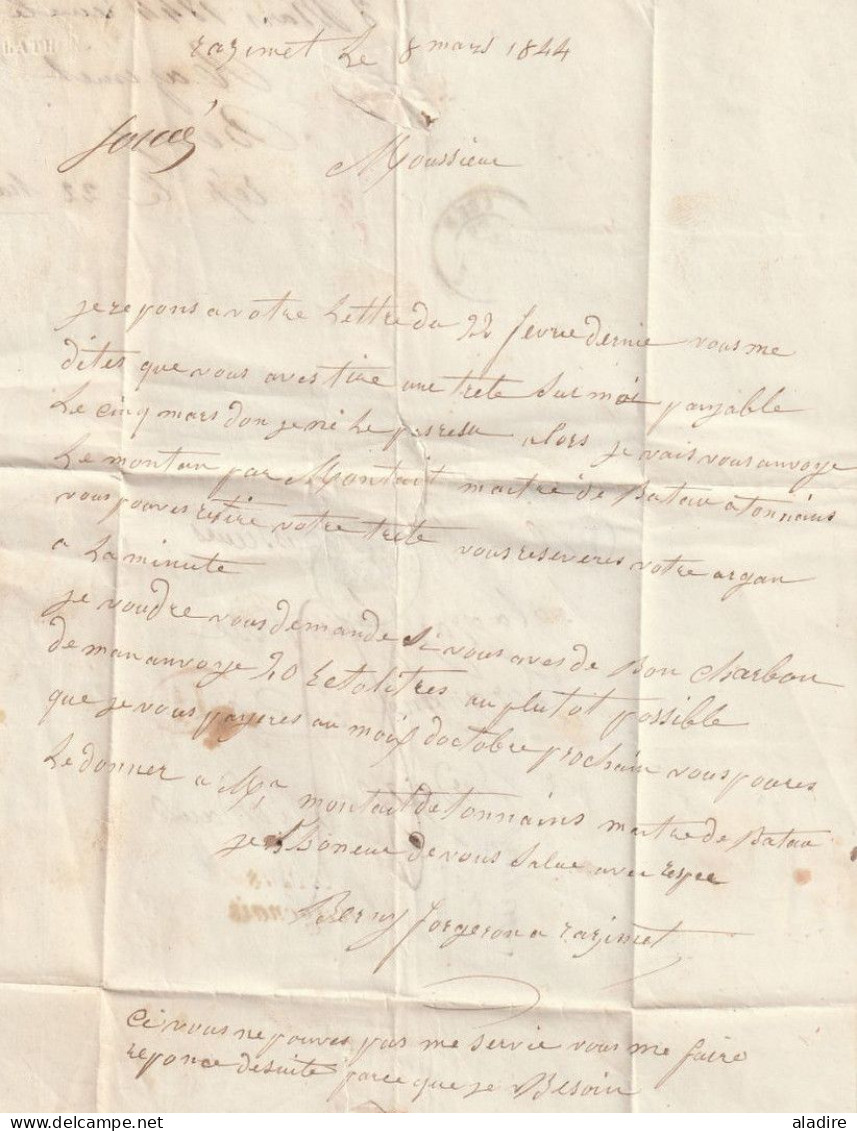 razimet Le 8 mars 1844
Moussieur
je repons a votre Lettre du 22 fevrie dernie vous me
dites que vous aves tire une trete Sur moi payable
Le cinq mars don je né Le pas resu alors je vais vous anvoye
Le montan par Montait maitre de Batau a tonnains
vous pouves retire votre trete vous reseveres votre argan
a La minute
je voudre vous demande Si vous aves de Bon charbon
de man anvoye 20 Ectolitres au plutot possible
que je vous payeres au mois doctobre prochain vous poures
Le donner a Mr montait de tonnains maitre de Batau
je L'honeur de vous Salue avec respec
Berny forgeron a razimet
Ci vous ne pouves pas me servie vous me faire
reponce desuite parce que je Besoin
aladire